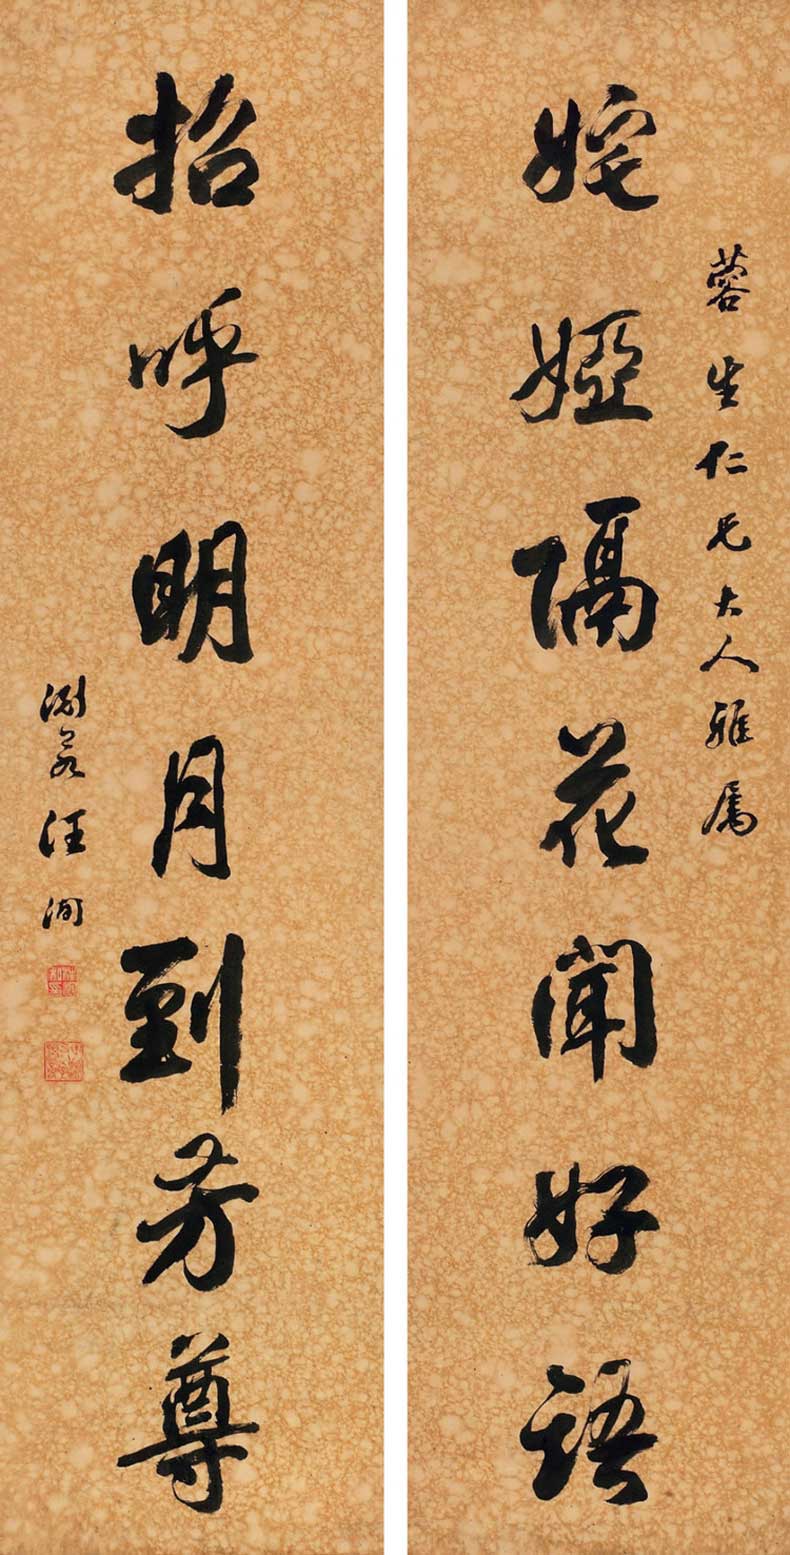 蓉生仁兄大人雅属
姹娅隔花闻好语
招呼明月到芳尊
汪洵